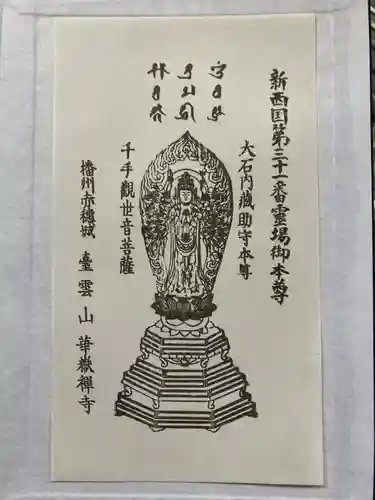 新西国第三十一番靈場御本尊
大石内蔵助守本尊
千手觀世音菩薩
播州赤穗城 臺雲山 華嶽禪寺